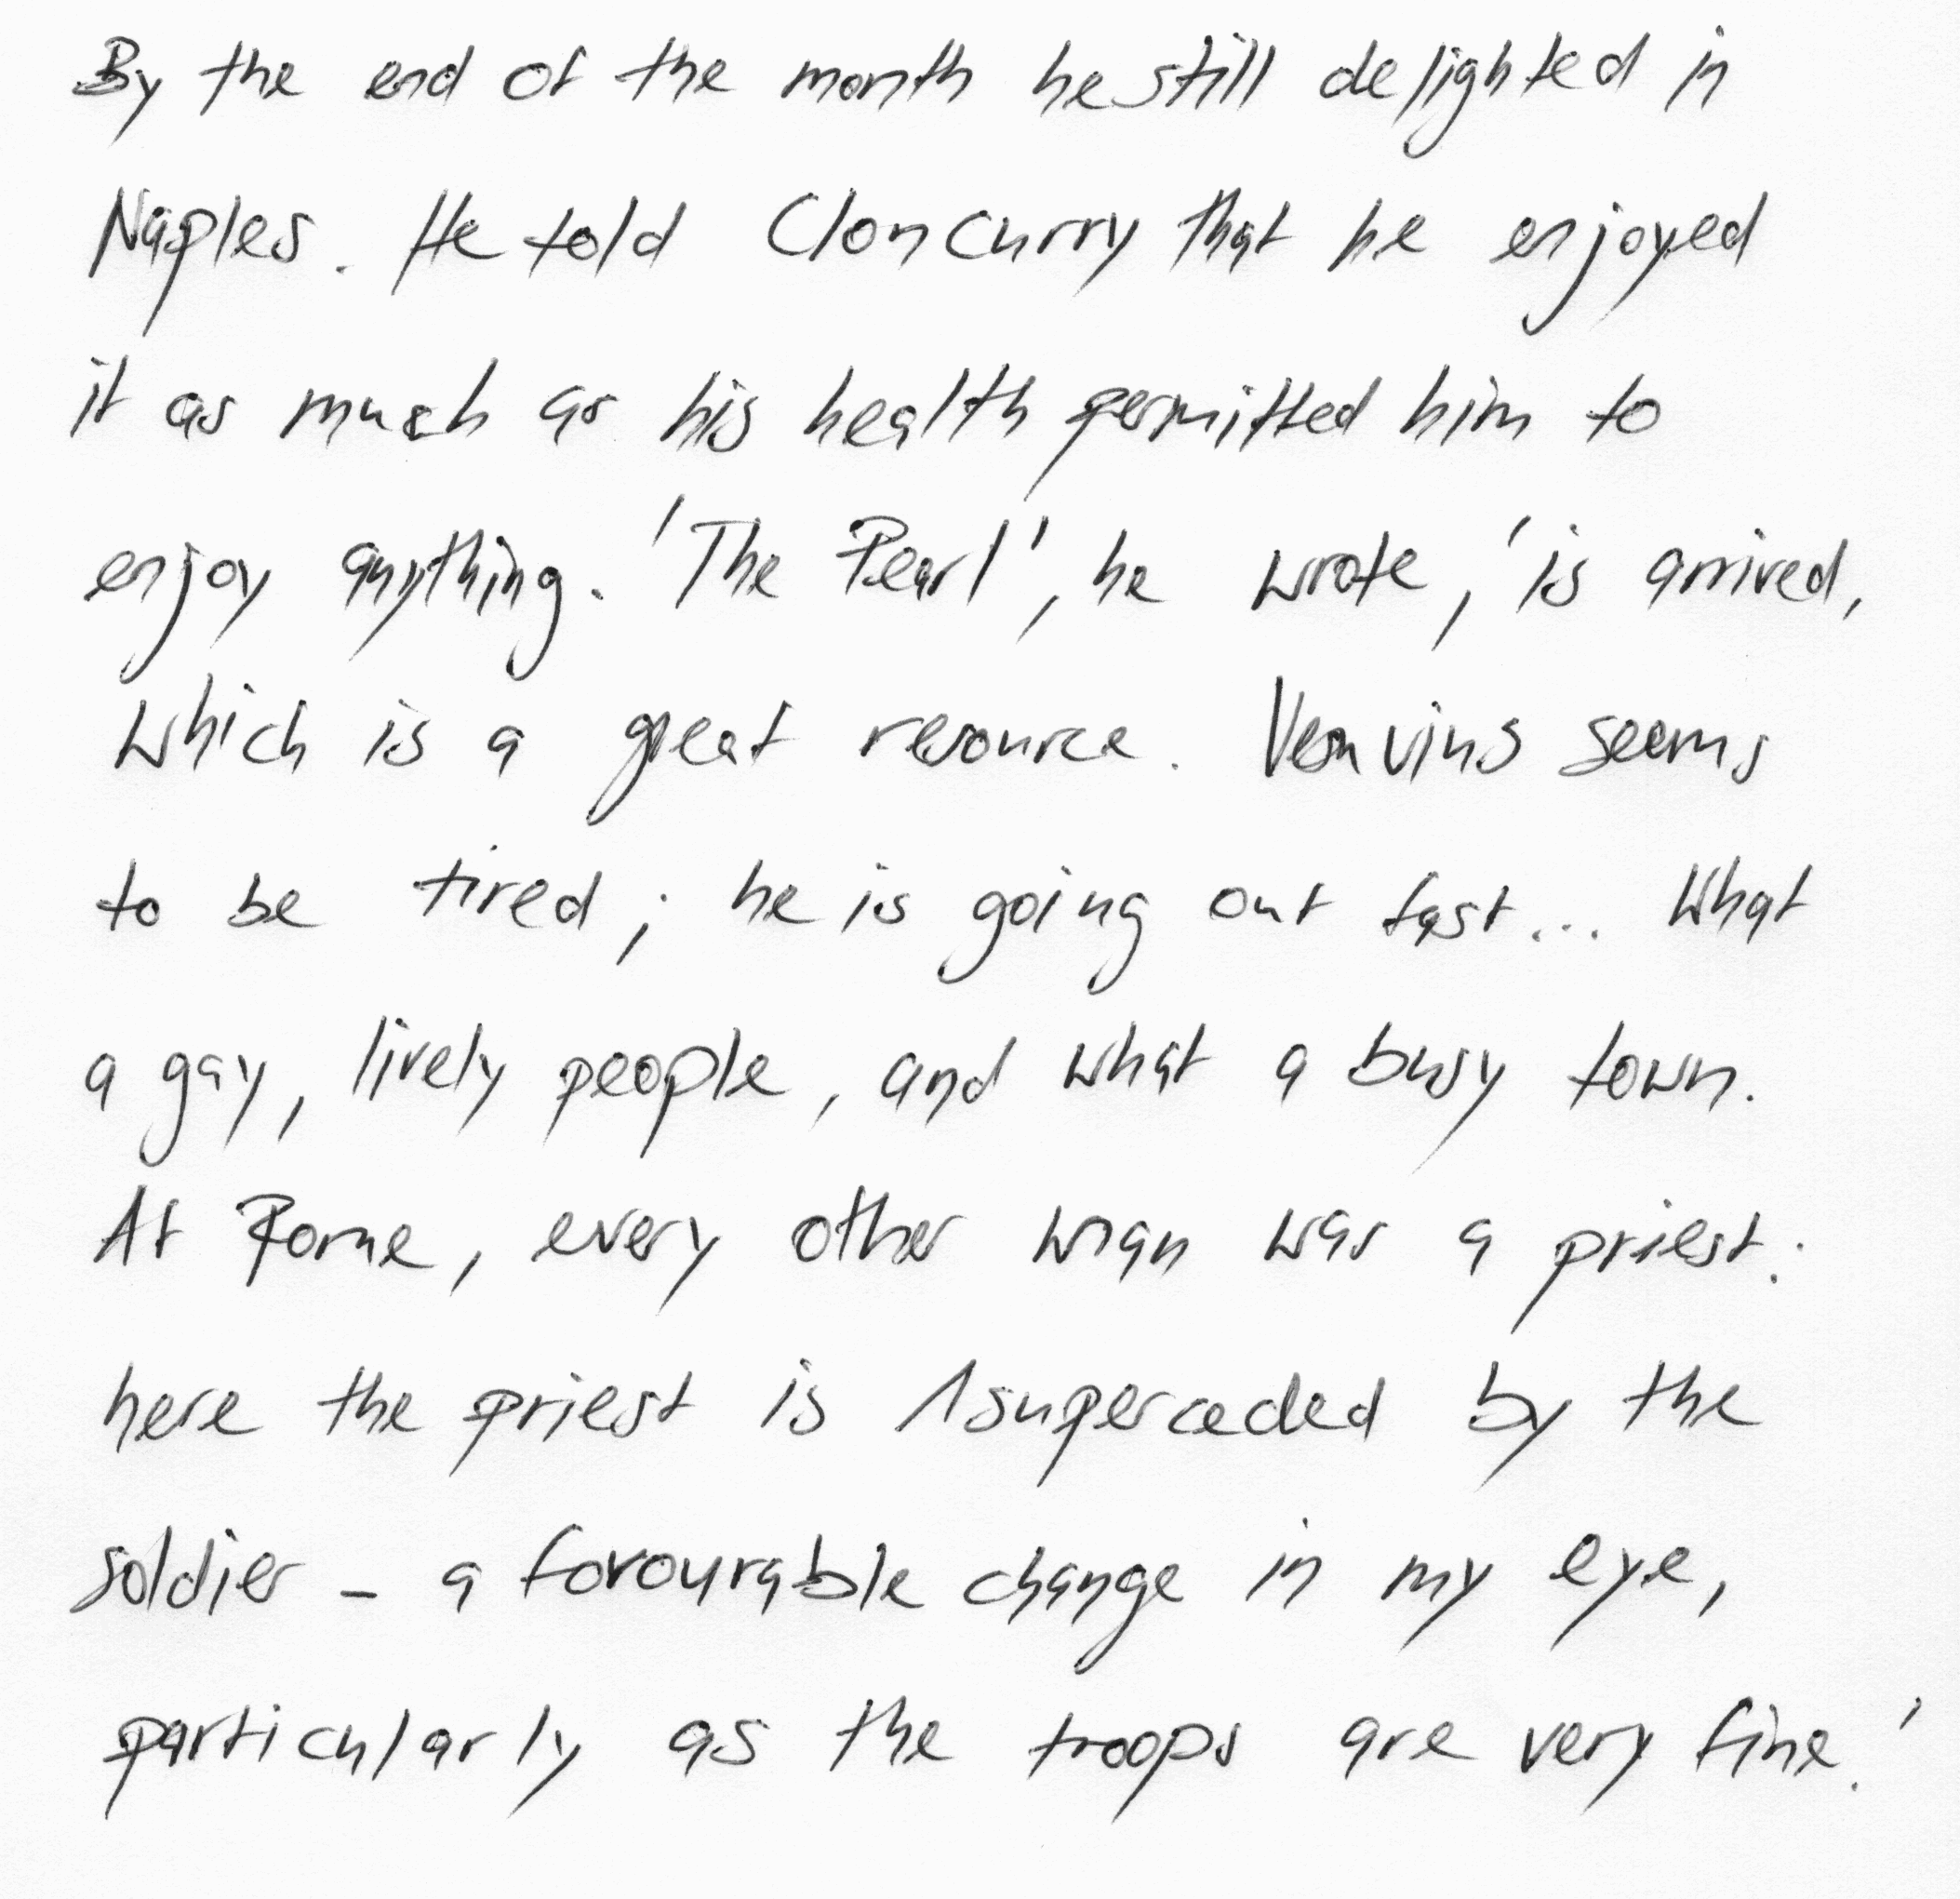 By the end of the month he still delighted in
Naples. He told Cloncurry that he enjoyed
it as much as his health permitted him to
enjoy anything. 'The Pearl', he wrote, 'is arrived,
which is a great resource. Vesuvius seems
to be tired; he is going out fast... What
a gay, lively people, and what a busy town.
At Rome, every other man was a priest:
here the priest is 1superceded by the
soldier - a favourable change in my eye,
particularly as the troops are very fine.'